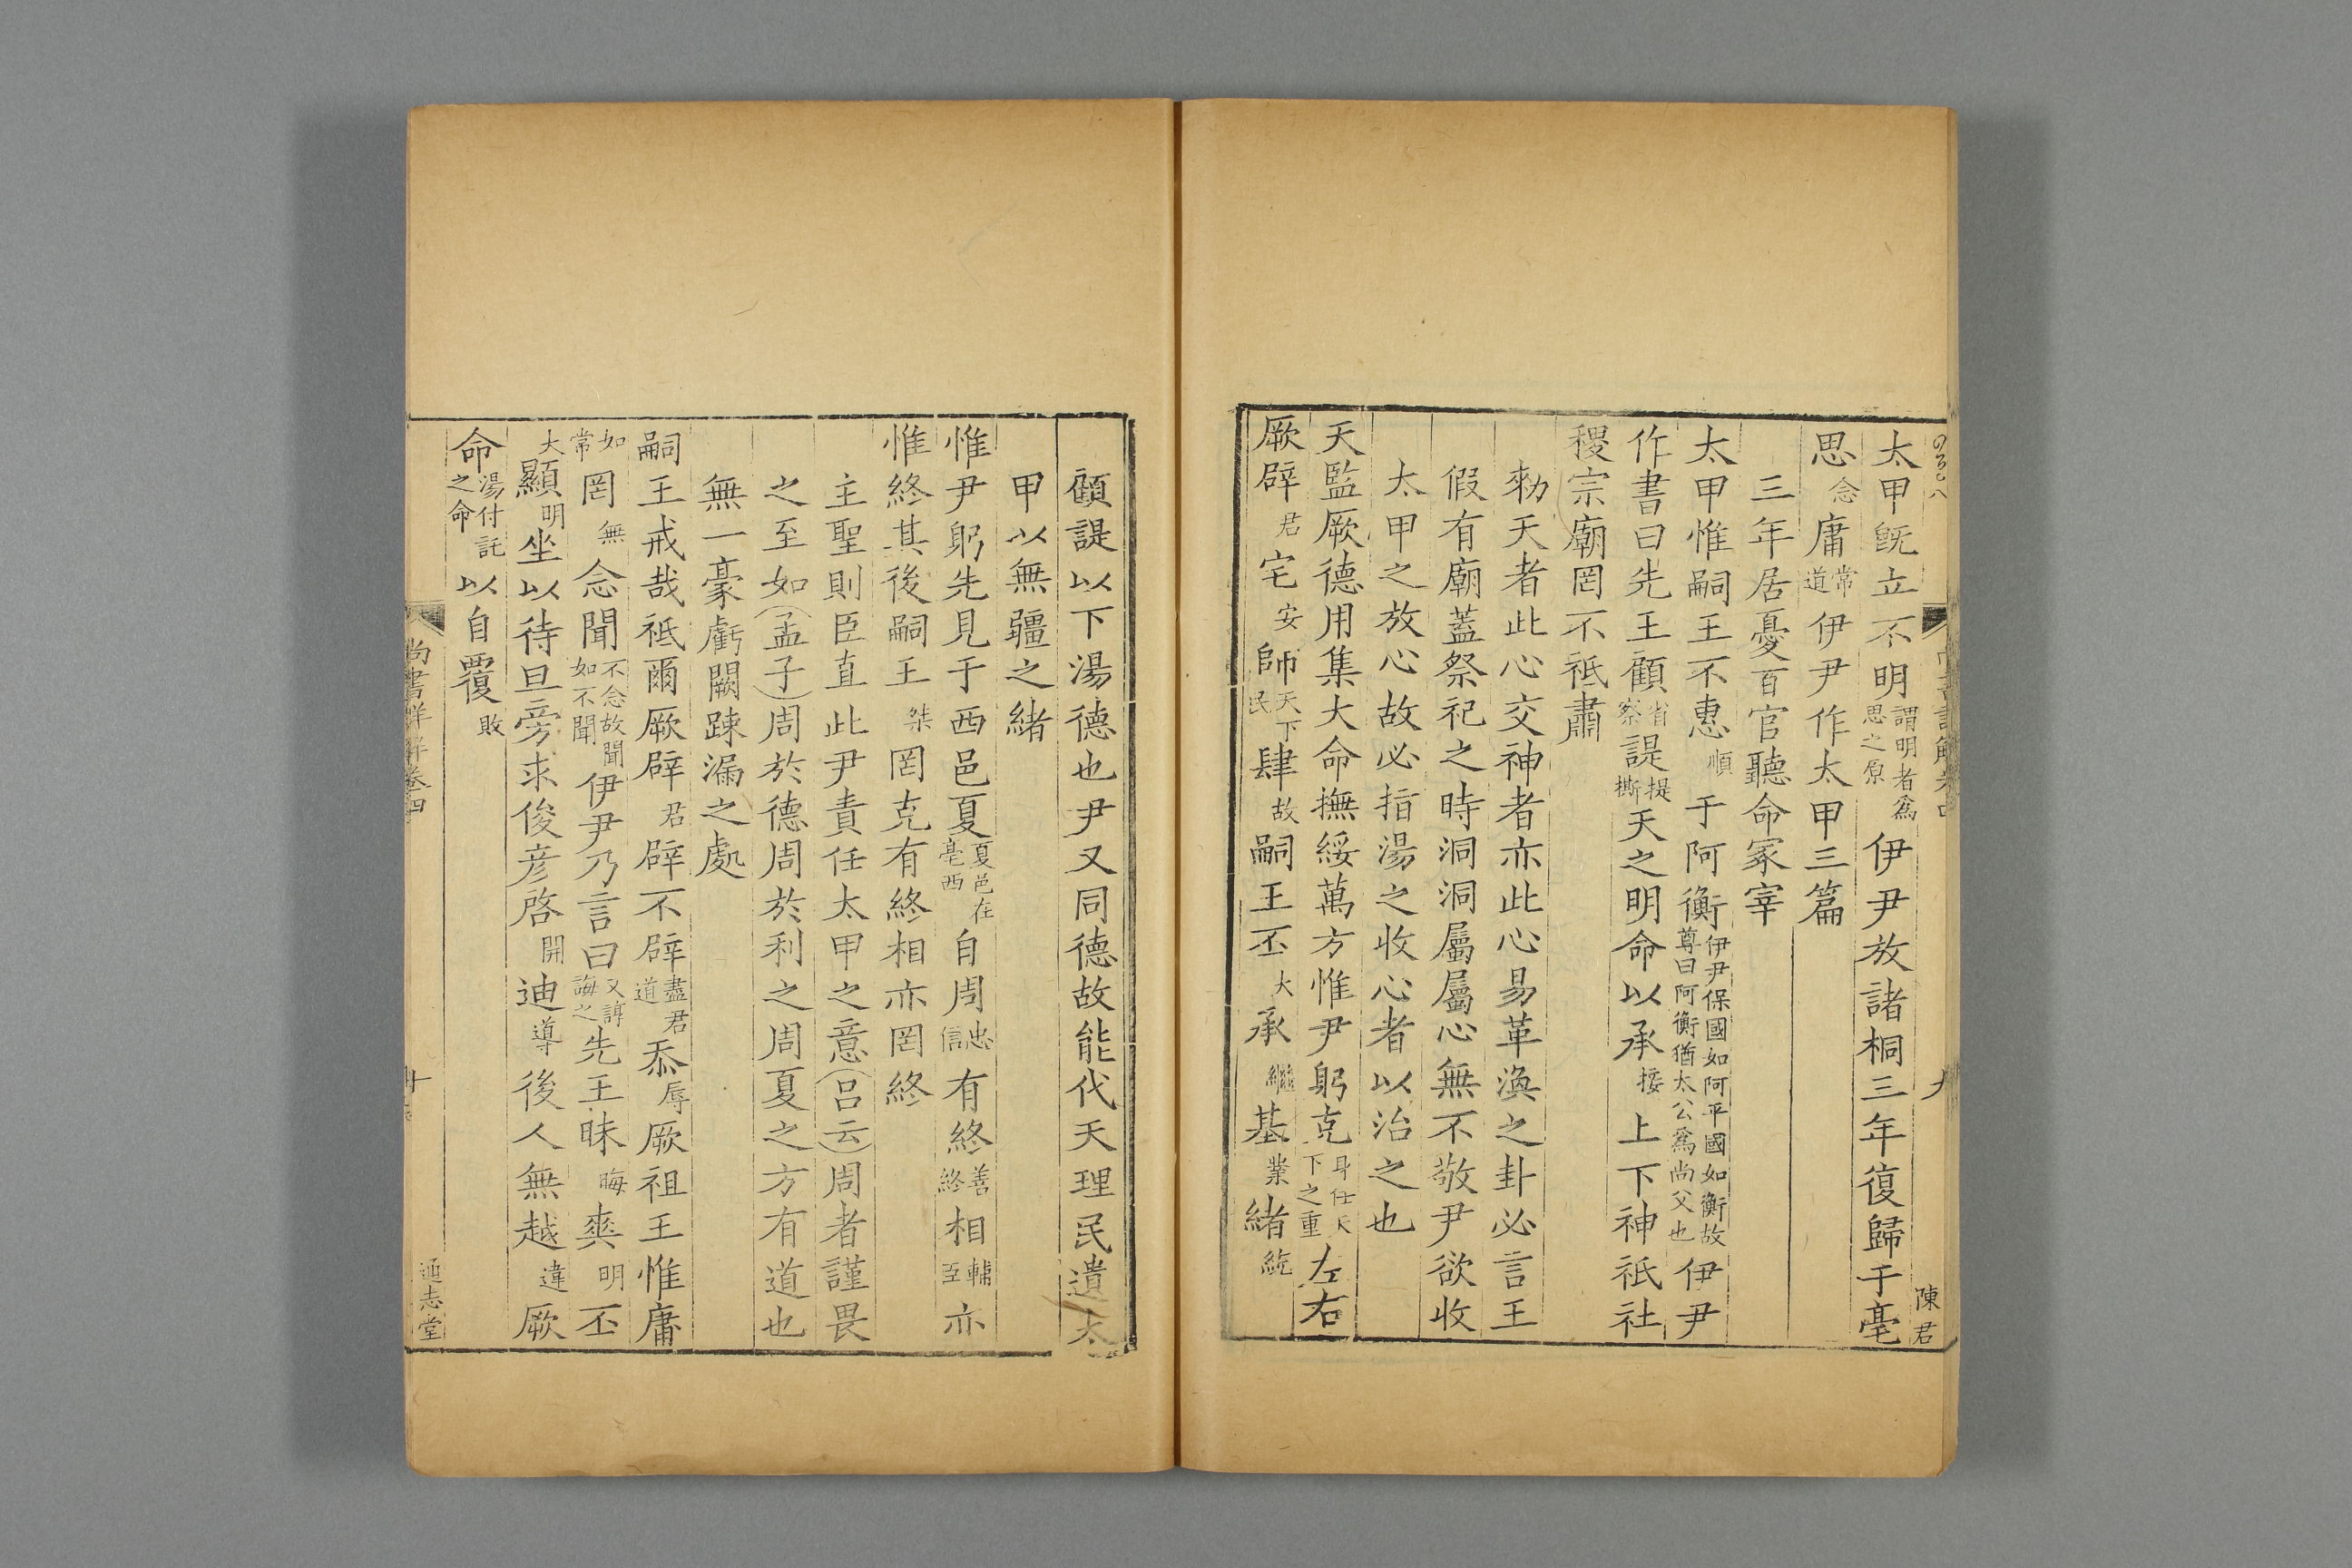 太甲旣立不明謂明者爲思之原伊尹放諸桐三年復歸于亳
思念庸常道伊尹作太甲三篇
三年居憂百官聽命冢宰
太甲惟嗣王不惠順于阿衡伊尹保國如阿平國如衡故尊曰阿衡猶太公爲尚父也伊尹
作書曰先王顧省察諟提撕天之明命以承接上下神祇社
稷宗廟罔不祗肅
勑天者此心交神者亦此心易革渙之卦必言王
假有廟蓋祭祀之時洞洞屬屬心無不敬尹欲收
太甲之放心故必指湯之收心者以治之也
天監厥德用集大命撫綏萬方惟尹躬克身任天下之重左右
厥辟君宅安師天下民肆故嗣王丕大承繼基業緒統
陳君
顧諟以下湯德也尹又同德故能代天理民遺太
甲以無疆之緒
惟尹躬先見于西邑夏夏邑在亳西自周忠信有終善終相輔臣亦
惟終其後嗣王桀罔克有終相亦罔終
主聖則臣直此尹責任太甲之意呂云周者謹畏
之至如孟子周於德周於利之周周夏之方有道也
無一豪虧闕踈漏之處
嗣王戒哉祗爾厥辟君辟不辟盡君道忝辱厥祖王惟庸
如常罔無念聞不念故聞如不聞伊尹乃言曰又諄誨之先王昧晦爽明丕
大顯明坐以待旦旁求俊彥啓開迪導後人無越違厥
命湯付託之命以自覆敗
尚書詳解卷四
十
通志堂